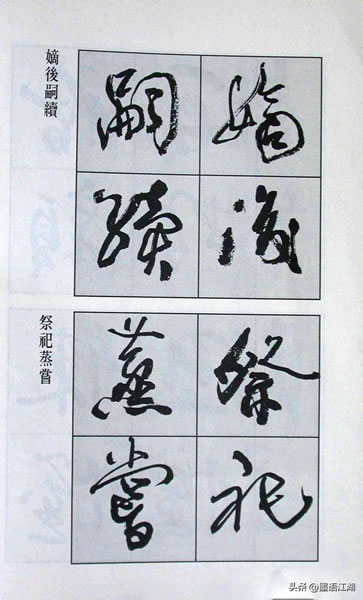 嫡後嗣續
嫡後
嗣續
祭祀蒸嘗
祭祀
蒸嘗
头条@墨语江湖